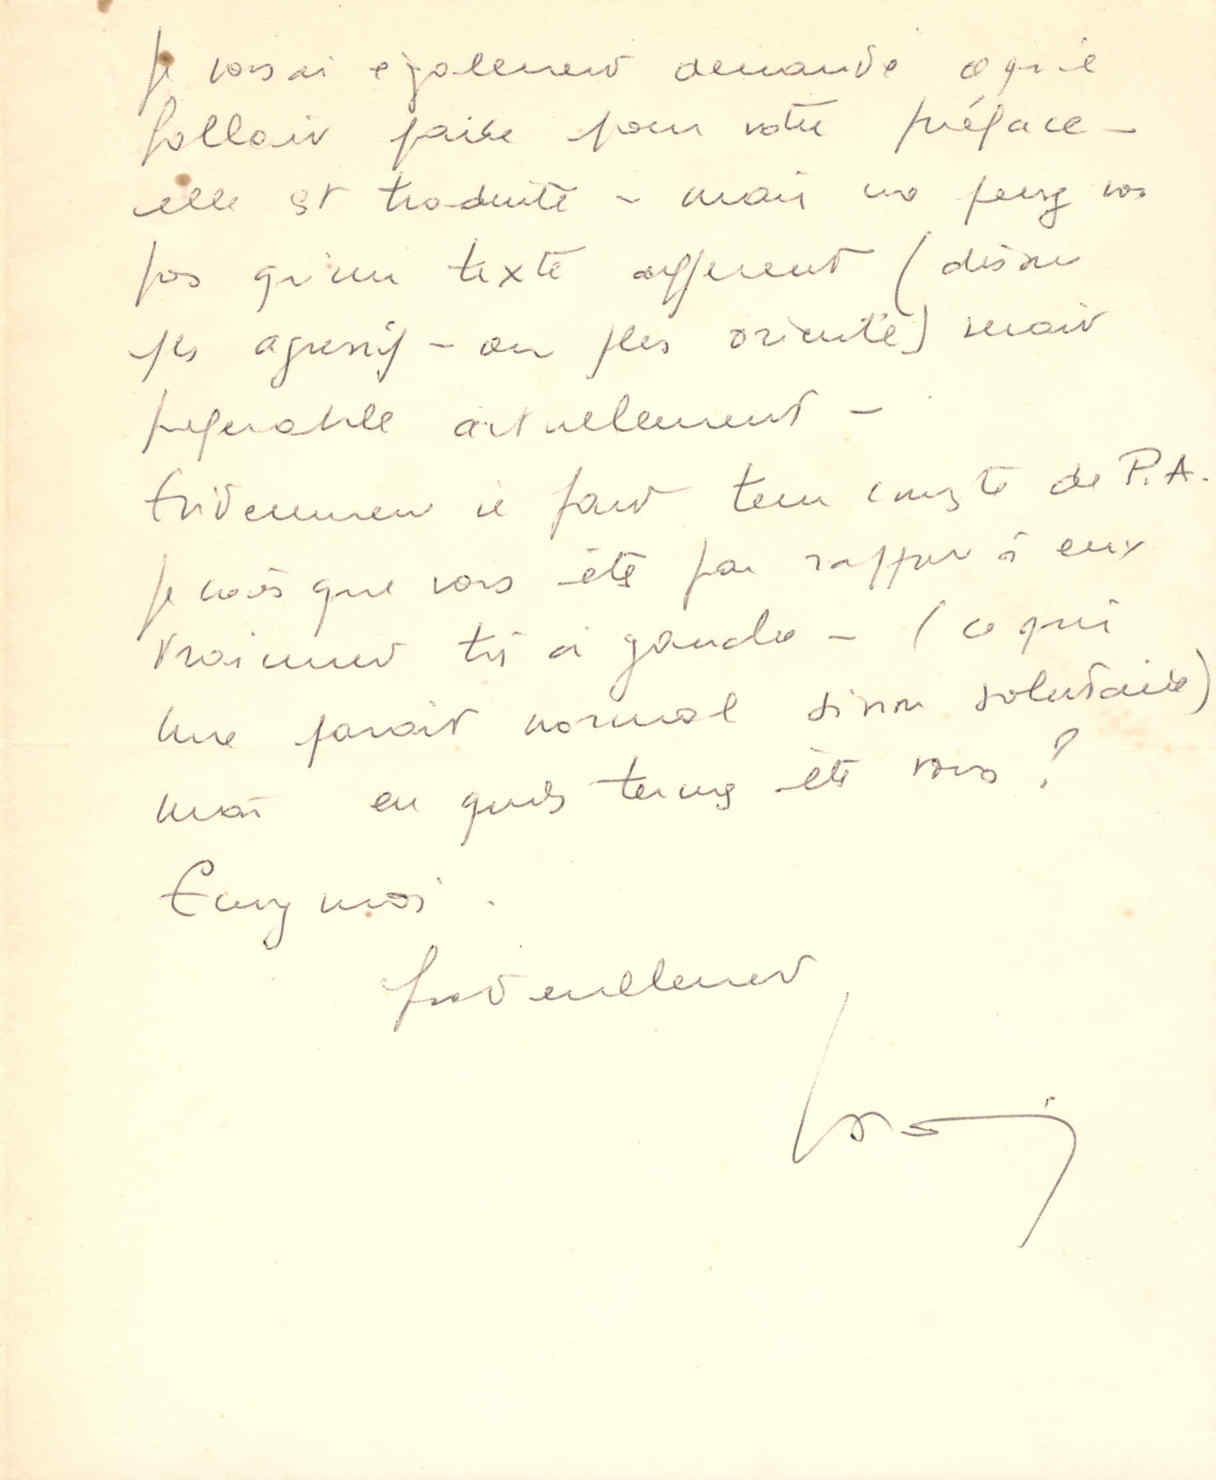 Je vous ai également demandé ce qu'il
fallait faire pour votre préface –
elle est traduite – mais ne pensez vous
pas qu'un texte différent (disons
plus agressif – ou plus orienté) serait
préférable actuellement –
Evidemment il faut tenir compte de P.A.
Je crois que vous êtes par rapport à eux
vraiment très à gauche – (ce qui
me parait normal sinon salutaire)
mais en quels termes êtes vous ?
Ecrivez moi.
fraternellement